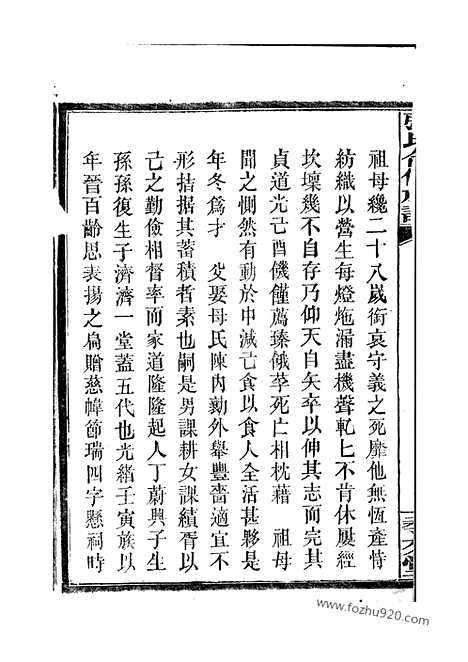 祖母纔二十八歲銜哀守義之死靡他無恆產恃
紡織以營生每燈灺漏盡機聲軋匕不肯休屢經
坎壈幾不自存乃仰天自矢卒以伸其志而完其
貞道光己酉饑饉薦臻餓莩死亡相枕藉 祖母
聞之惻然有動於中減己食以食人全活甚夥是
年冬爲才 父娶母氏陳內勷外舉豐嗇適宜不
形拮据其蓄積者素也嗣是男課耕女課績胥以
己之勤儉相督率而家道隆隆起人丁蔚興子生
孫孫復生子濟濟一堂蓋五代也光緒壬寅族以
年晉百齡思表揚之扁贈慈幃節瑞四字懸祠時
www.fozhu920.com